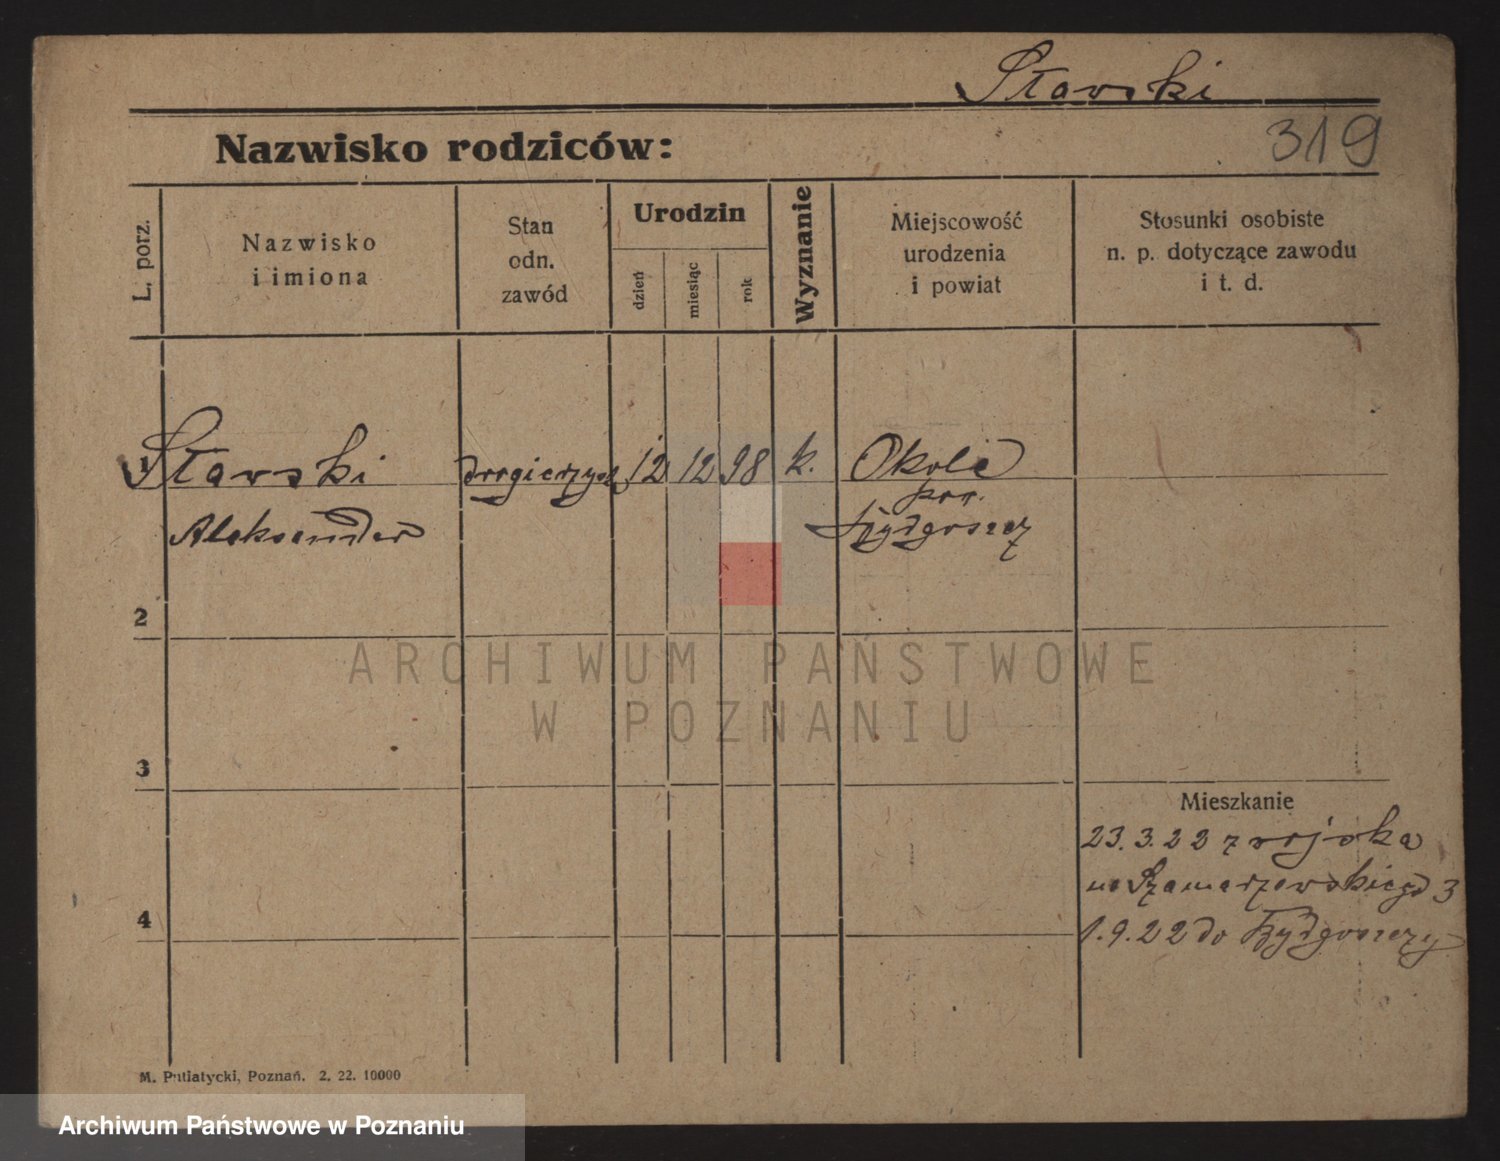 Sławski
Nazwisko rodziców:
319
L. porz.
Nazwisko
i imiona
Stan
odn.
zawód
Urodzin
dzień
miesiąc
rok
Wyznanie
Miejscowość
urodzenia
i powiat
Stosunki osobiste
n. p. dotyczące zawodu
i t. d.
Sławski drogierzyst 12 12 98 k. Okole
pow.
Aleksander Bydgoszcz
2
3
Mieszkanie
23.3.22 z wojska
na Szamarzewskiego 3
4
1.9.22 do Bydgoszczy
M. Putiatycki, Poznań. 2. 22. 10000
ARCHIWUM PAŃSTWOWE
W POZNANIU
Archiwum Państwowe w Poznaniu